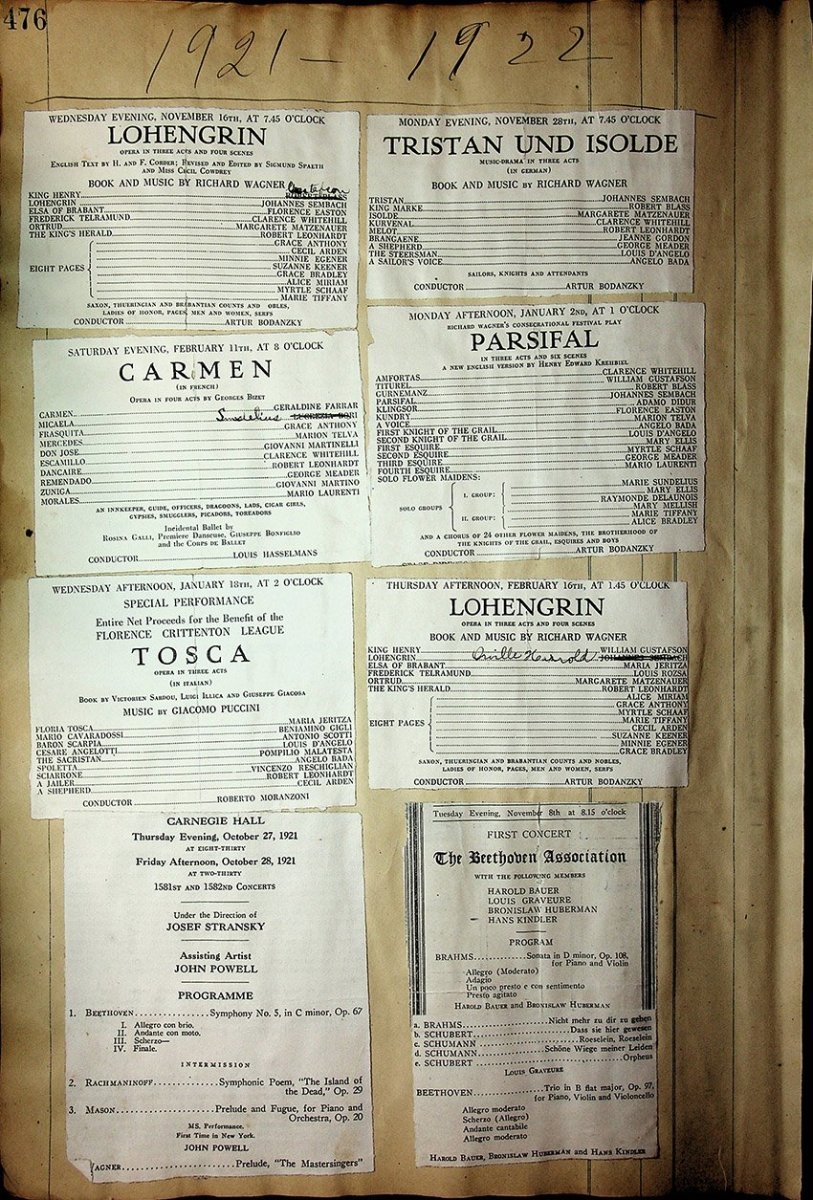 476
1921 - 1922
WEDNESDAY EVENING, NOVEMBER 16TH, AT 7.45 O'CLOCK
LOHENGRIN
OPERA IN THREE ACTS AND FOUR SCENES
ENGLISH TEXT BY H. AND F. CORDER; REVISED AND EDITED BY SIGMUND SPAETH
AND MISS CECIL COWDREY
BOOK AND MUSIC BY RICHARD WAGNER
KING HENRY Gustafson ROBERT BLASS
LOHENGRIN JOHANNES SEMBACH
ELSA OF BRABANT FLORENCE EASTON
FREDERICK TELRAMUND CLARENCE WHITEHILL
ORTRUD MARGARETE MATZENAUER
THE KING'S HERALD ROBERT LEONHARDT
EIGHT PAGES
GRACE ANTHONY
CECIL ARDEN
MINNIE EGENER
SUZANNE KEENER
GRACE BRADLEY
ALICE MIRIAM
MYRTLE SCHAAF
MARIE TIFFANY
SAXON, THUERINGIAN AND BRABANTIAN COUNTS AND OBLES,
LADIES OF HONOR, PAGES, MEN AND WOMEN, SERFS
CONDUCTOR ARTUR BODANZKY
MONDAY EVENING, NOVEMBER 28TH, AT 7.45 O'CLOCK
TRISTAN UND ISOLDE
MUSIC-DRAMA IN THREE ACTS
(IN GERMAN)
BOOK AND MUSIC BY RICHARD WAGNER
TRISTAN JOHANNES SEMBACH
KING MARKE ROBERT BLASS
ISOLDE MARGARETE MATZENAUER
KURVENAL CLARENCE WHITEHILL
MELOT ROBERT LEONHARDT
BRANGAENE JEANNE GORDON
A SHEPHERD GEORGE MEADER
THE STEERSMAN LOUIS D'ANGELO
A SAILOR'S VOICE ANGELO BADA
SAILORS, KNIGHTS AND ATTENDANTS
CONDUCTOR ARTUR BODANZKY
SATURDAY EVENING, FEBRUARY 11TH, AT 8 O'CLOCK
CARMEN
(IN FRENCH)
OPERA IN FOUR ACTS BY GEORGES BIZET
CARMEN GERALDINE FARRAR
MICAELA Sundelius LUCREZIA BORI
FRASQUITA GRACE ANTHONY
MERCEDES MARION TELVA
DON JOSE GIOVANNI MARTINELLI
ESCAMILLO CLARENCE WHITEHILL
DANCAIRE ROBERT LEONHARDT
REMENDADO GEORGE MEADER
ZUNIGA GIOVANNI MARTINO
MORALES MARIO LAURENTI
AN INNKEEPER, GUIDE, OFFICERS, DRAGOONS, LADS, CIGAR GIRLS,
GYPSIES, SMUGGLERS, PICADORS, TOREADORS
Incidental Ballet by
ROSINA GALLI, PREMIERE DANSEUSE, GIUSEPPE BONFIGLIO
and the CORPS DE BALLET
CONDUCTOR LOUIS HASSELMANS
MONDAY AFTERNOON, JANUARY 2ND, AT 1 O'CLOCK
RICHARD WAGNER'S CONSECRATIONAL FESTIVAL PLAY
PARSIFAL
IN THREE ACTS AND SIX SCENES
A NEW ENGLISH VERSION BY HENRY EDWARD KREHBIEL
AMFORTAS CLARENCE WHITEHILL
TITUREL WILLIAM GUSTAFSON
GURNEMANZ ROBERT BLASS
PARSIFAL JOHANNES SEMBACH
KLINGSOR ADAMO DIDUR
KUNDRY FLORENCE EASTON
A VOICE MARION TELVA
FIRST KNIGHT OF THE GRAIL ANGELO BADA
SECOND KNIGHT OF THE GRAIL LOUIS D'ANGELO
FIRST ESQUIRE MARY ELLIS
SECOND ESQUIRE MYRTLE SCHAAF
THIRD ESQUIRE GEORGE MEADER
FOURTH ESQUIRE MARIO LAURENTI
SOLO FLOWER MAIDENS:
SOLO GROUPS
I. GROUP:
MARIE SUNDELIUS
MARY ELLIS
RAYMONDE DELAUNOIS
II. GROUP:
MARY MELLISH
MARIE TIFFANY
ALICE BRADLEY
AND A CHORUS OF 24 OTHER FLOWER MAIDENS, THE BROTHERHOOD OF
THE KNIGHTS OF THE GRAIL, ESQUIRES AND BOYS
CONDUCTOR ARTUR BODANZKY
WEDNESDAY AFTERNOON, JANUARY 18TH, AT 2 O'CLOCK
SPECIAL PERFORMANCE
Entire Net Proceeds for the Benefit of the
FLORENCE CRITTENTON LEAGUE
TOSCA
OPERA IN THREE ACTS
(IN ITALIAN)
BOOK BY VICTORIEN SARDOU, LUIGI ILLICA AND GIUSEPPE GIACOSA
MUSIC BY GIACOMO PUCCINI
FLORIA TOSCA MARIA JERITZA
MARIO CAVARADOSSI BENIAMINO GIGLI
BARON SCARPIA ANTONIO SCOTTI
CESARE ANGELOTTI LOUIS D'ANGELO
THE SACRISTAN POMPILIO MALATESTA
SPOLETTA ANGELO BADA
SCIARRONE VINCENZO RESCHIGLIAN
A JAILER ROBERT LEONHARDT
A SHEPHERD CECIL ARDEN
CONDUCTOR ROBERTO MORANZONI
THURSDAY AFTERNOON, FEBRUARY 16TH, AT 1.45 O'CLOCK
LOHENGRIN
OPERA IN THREE ACTS AND FOUR SCENES
BOOK AND MUSIC BY RICHARD WAGNER
KING HENRY WILLIAM GUSTAFSON
LOHENGRIN Orville Harrold JOHANNES SEMBACH
ELSA OF BRABANT MARIA JERITZA
FREDERICK TELRAMUND LOUIS ROZSA
ORTRUD MARGARETE MATZENAUER
THE KING'S HERALD ROBERT LEONHARDT
EIGHT PAGES
ALICE MIRIAM
GRACE ANTHONY
MYRTLE SCHAAF
MARIE TIFFANY
CECIL ARDEN
SUZANNE KEENER
MINNIE EGENER
GRACE BRADLEY
SAXON, THUERINGIAN AND BRABANTIAN COUNTS AND NOBLES,
LADIES OF HONOR, PAGES, MEN AND WOMEN, SERFS
CONDUCTOR ARTUR BODANZKY
CARNEGIE HALL
Thursday Evening, October 27, 1921
AT EIGHT-THIRTY
Friday Afternoon, October 28, 1921
AT TWO-THIRTY
1581ST AND 1582ND CONCERTS
Under the Direction of
JOSEF STRANSKY
Assisting Artist
JOHN POWELL
PROGRAMME
1. BEETHOVEN Symphony No. 5, in C minor, Op. 67
I. Allegro con brio.
II. Andante con moto.
III. Scherzo—
IV. Finale.
INTERMISSION
2. RACHMANINOFF Symphonic Poem, "The Island of
the Dead," Op. 29
3. MASON Prelude and Fugue, for Piano and
Orchestra, Op. 20
MS. Performance.
First Time in New York.
JOHN POWELL
AGNER Prelude, "The Mastersingers"
Tuesday Evening, November 8th at 8.15 o'clock
FIRST CONCERT
The Beethoven Association
WITH THE FOLLOWING MEMBERS
HAROLD BAUER
LOUIS GRAVEURE
BRONISLAW HUBERMAN
HANS KINDLER
PROGRAM
BRAHMS Sonata in D minor, Op. 108,
for Piano and Violin
Allegro (Moderato)
Adagio
Un poco presto e con sentimento
Presto agitato
HAROLD BAUER and BRONISLAW HUBERMAN
a. BRAHMS Nicht mehr zu dir zu gehen
b. SCHUBERT Dass sie hier gewesen
c. SCHUMANN Roeselein, Roeselein
d. SCHUMANN Schöne Wiege meiner Leiden
e. SCHUBERT Orpheus
LOUIS GRAVEURE
BEETHOVEN Trio in B flat major, Op. 97,
for Piano, Violin and Violoncello
Allegro moderato
Scherzo (Allegro)
Andante cantabile
Allegro moderato
HAROLD BAUER, BRONISLAW HUBERMAN and HANS KINDLER